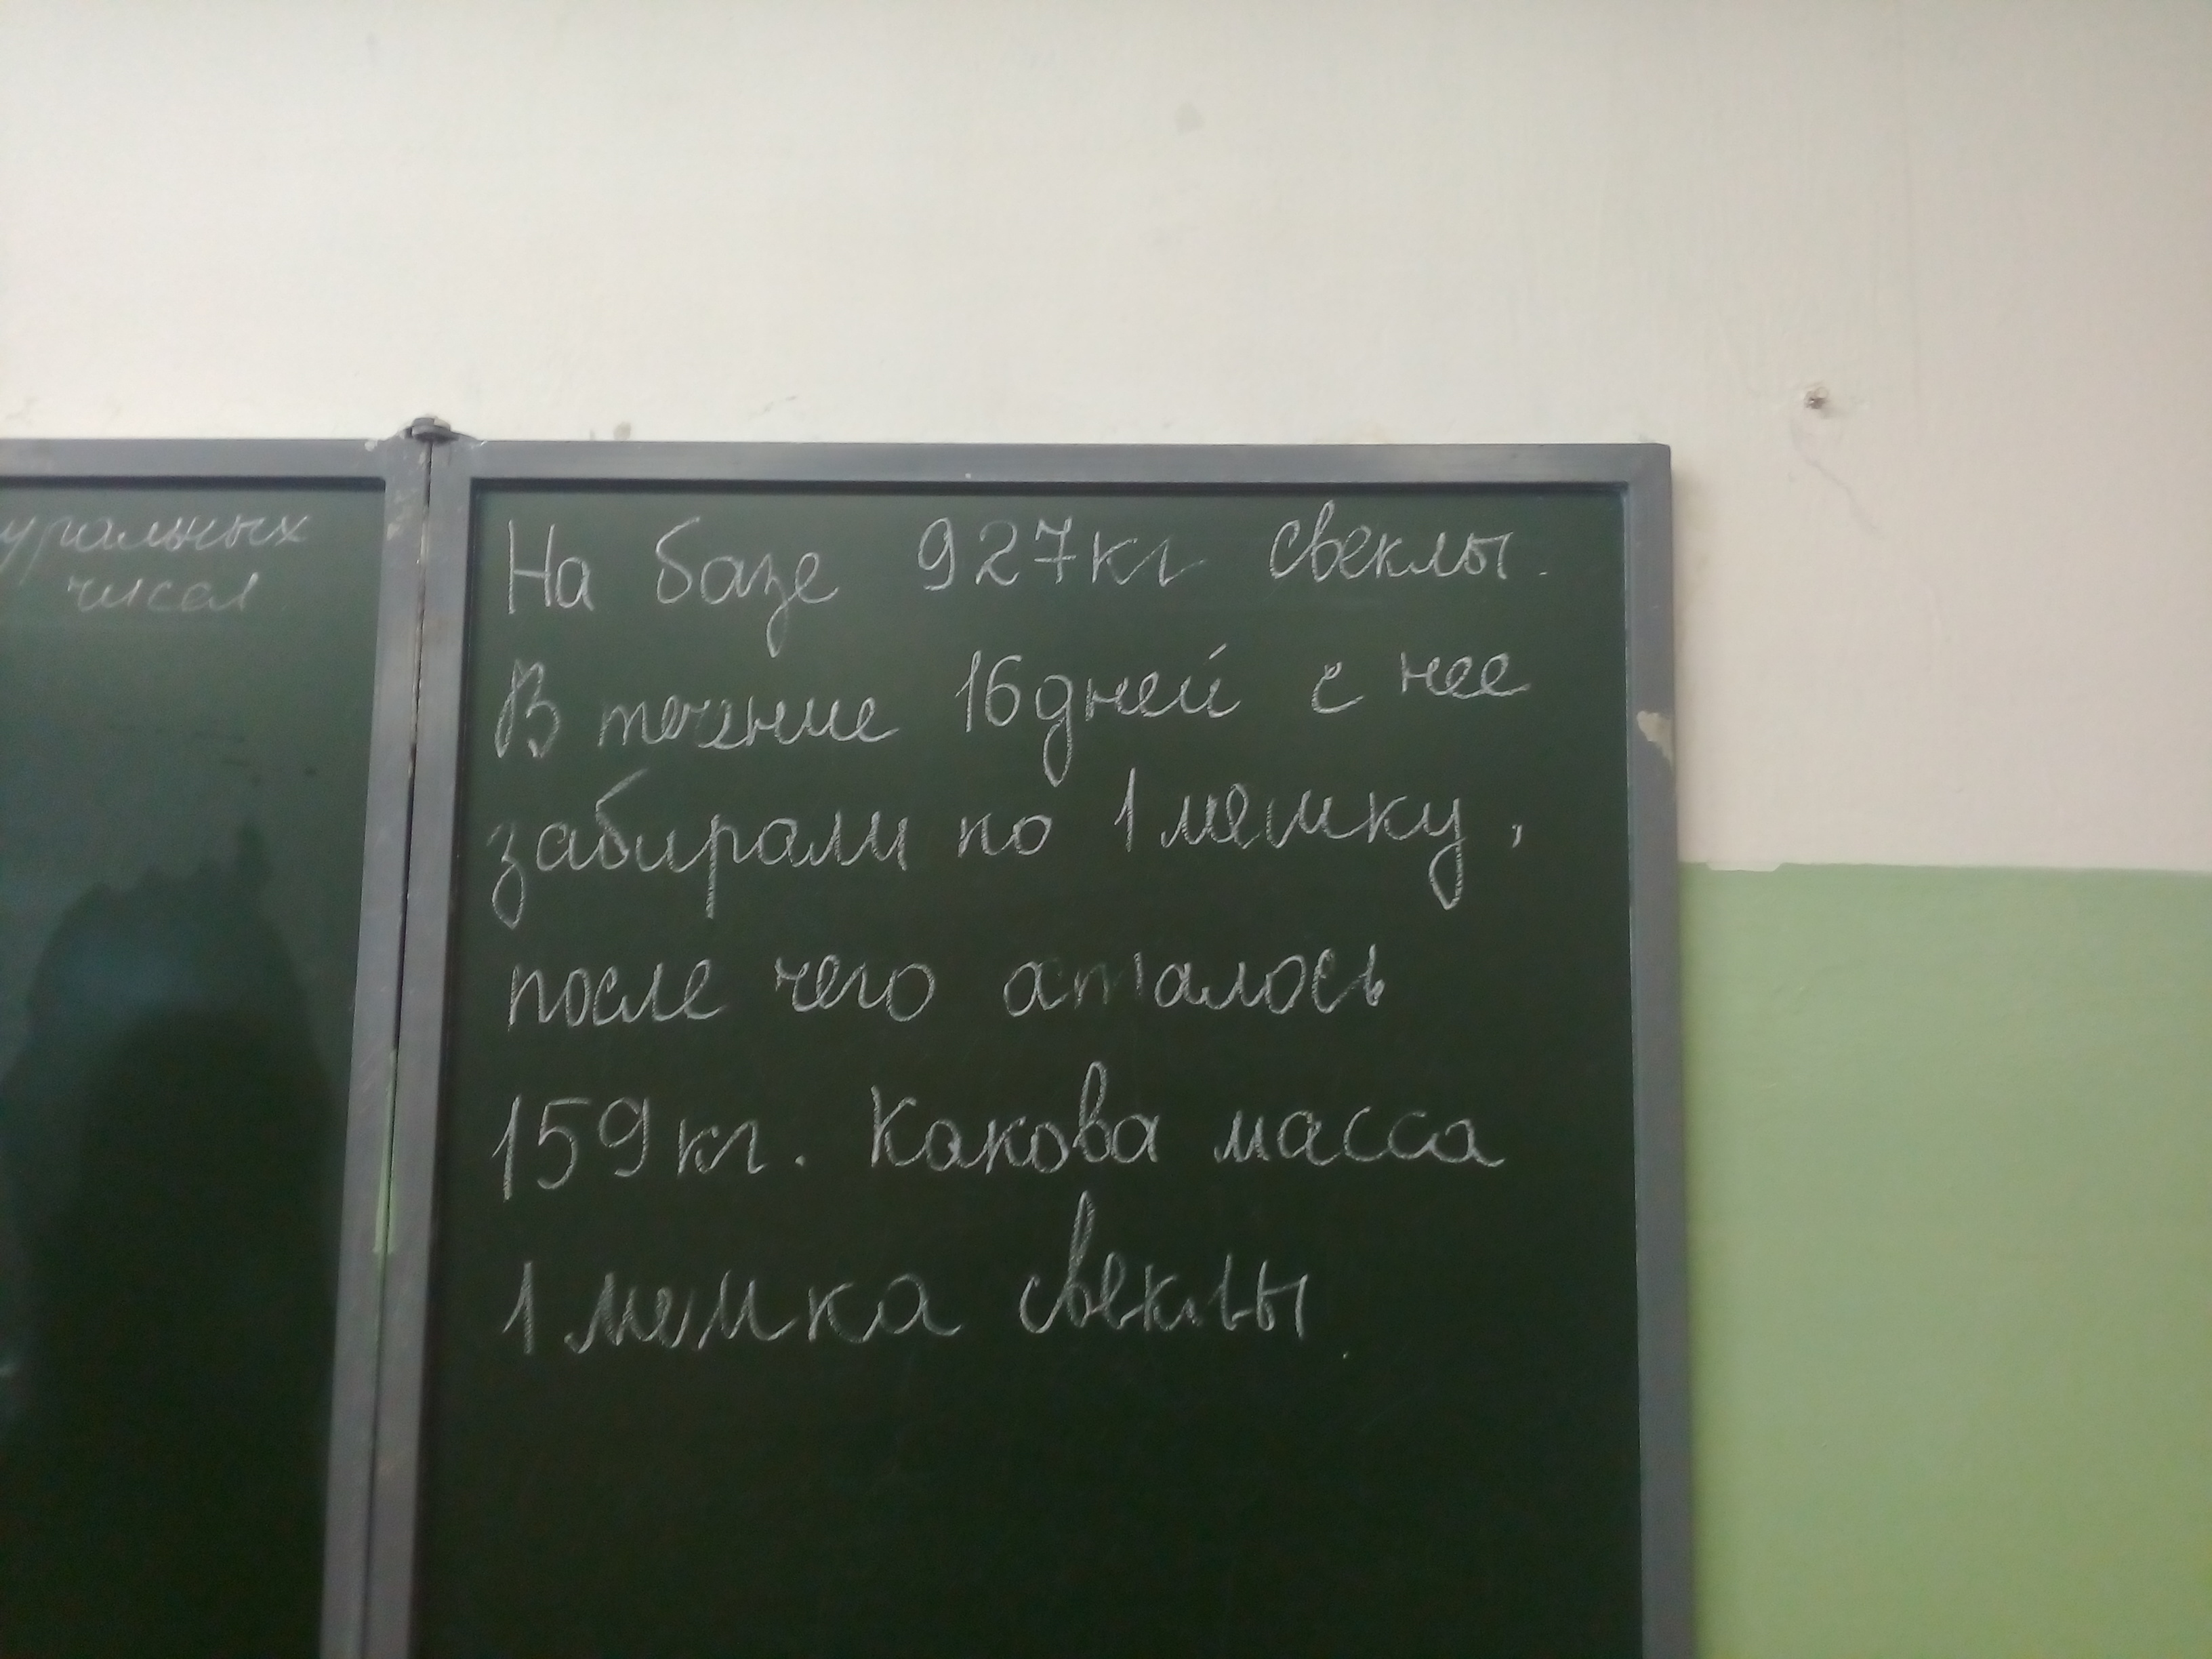 уральных
чисел
На базе 927кг свеклы.
В течение 16дней с нее
забирали по 1 мешку,
после чего осталось
159кг. Какова масса
1 мешка свеклы.